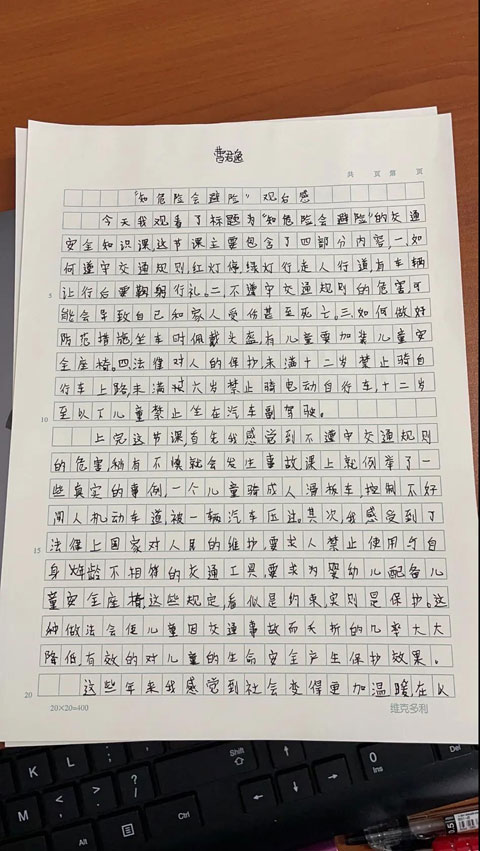 曹君逸
共 页 第 页
"知危险会避险"观后感
今天我观看了标题为"知危险,会避险"的交通
安全知识课这节课主要包含了四部分内容,一、如
何遵守交通规则,红灯停,绿灯行走人行道,有车辆
5
让行后要鞠躬行礼。二、不遵守交通规则的危害,可
能会导致自己和家人受伤甚至死亡,三、如何做好
防范措施坐车时佩戴头盔,有儿童要加装儿童安
全座椅。四、法律对人的保护,未满十二岁禁止骑自
行车上路,未满 六岁禁止骑电动自行车,十二岁
10
至以下儿童禁止坐在汽车副驾驶。
上完这节课,首先我感觉到不遵守交通规则
的危害,稍有不慎就会发生事故课上就例举了一
些真实的事例,一个儿童骑成人滑板车,控制不好
闯入机动车道被一辆汽车压 其次,我感受到了
15
法律上国家对人民的维护,要求人禁止使用与自
身年龄不相符的交通工具,要求为婴幼儿配备儿
童安全座椅,这些规定,看似是约束实则是保护。这
种做法会使儿童因交通事故而夭折的几率大大
降低,有效的对儿童的生命安全产生保护效果。
20
这些年来我感觉到社会变得更加温暖在以
20×20=400
维克多利
K
L
:
;
"
'
M
<
,
>
.
?
/
Shift
Alt
Ctrl
0
Ins
Del